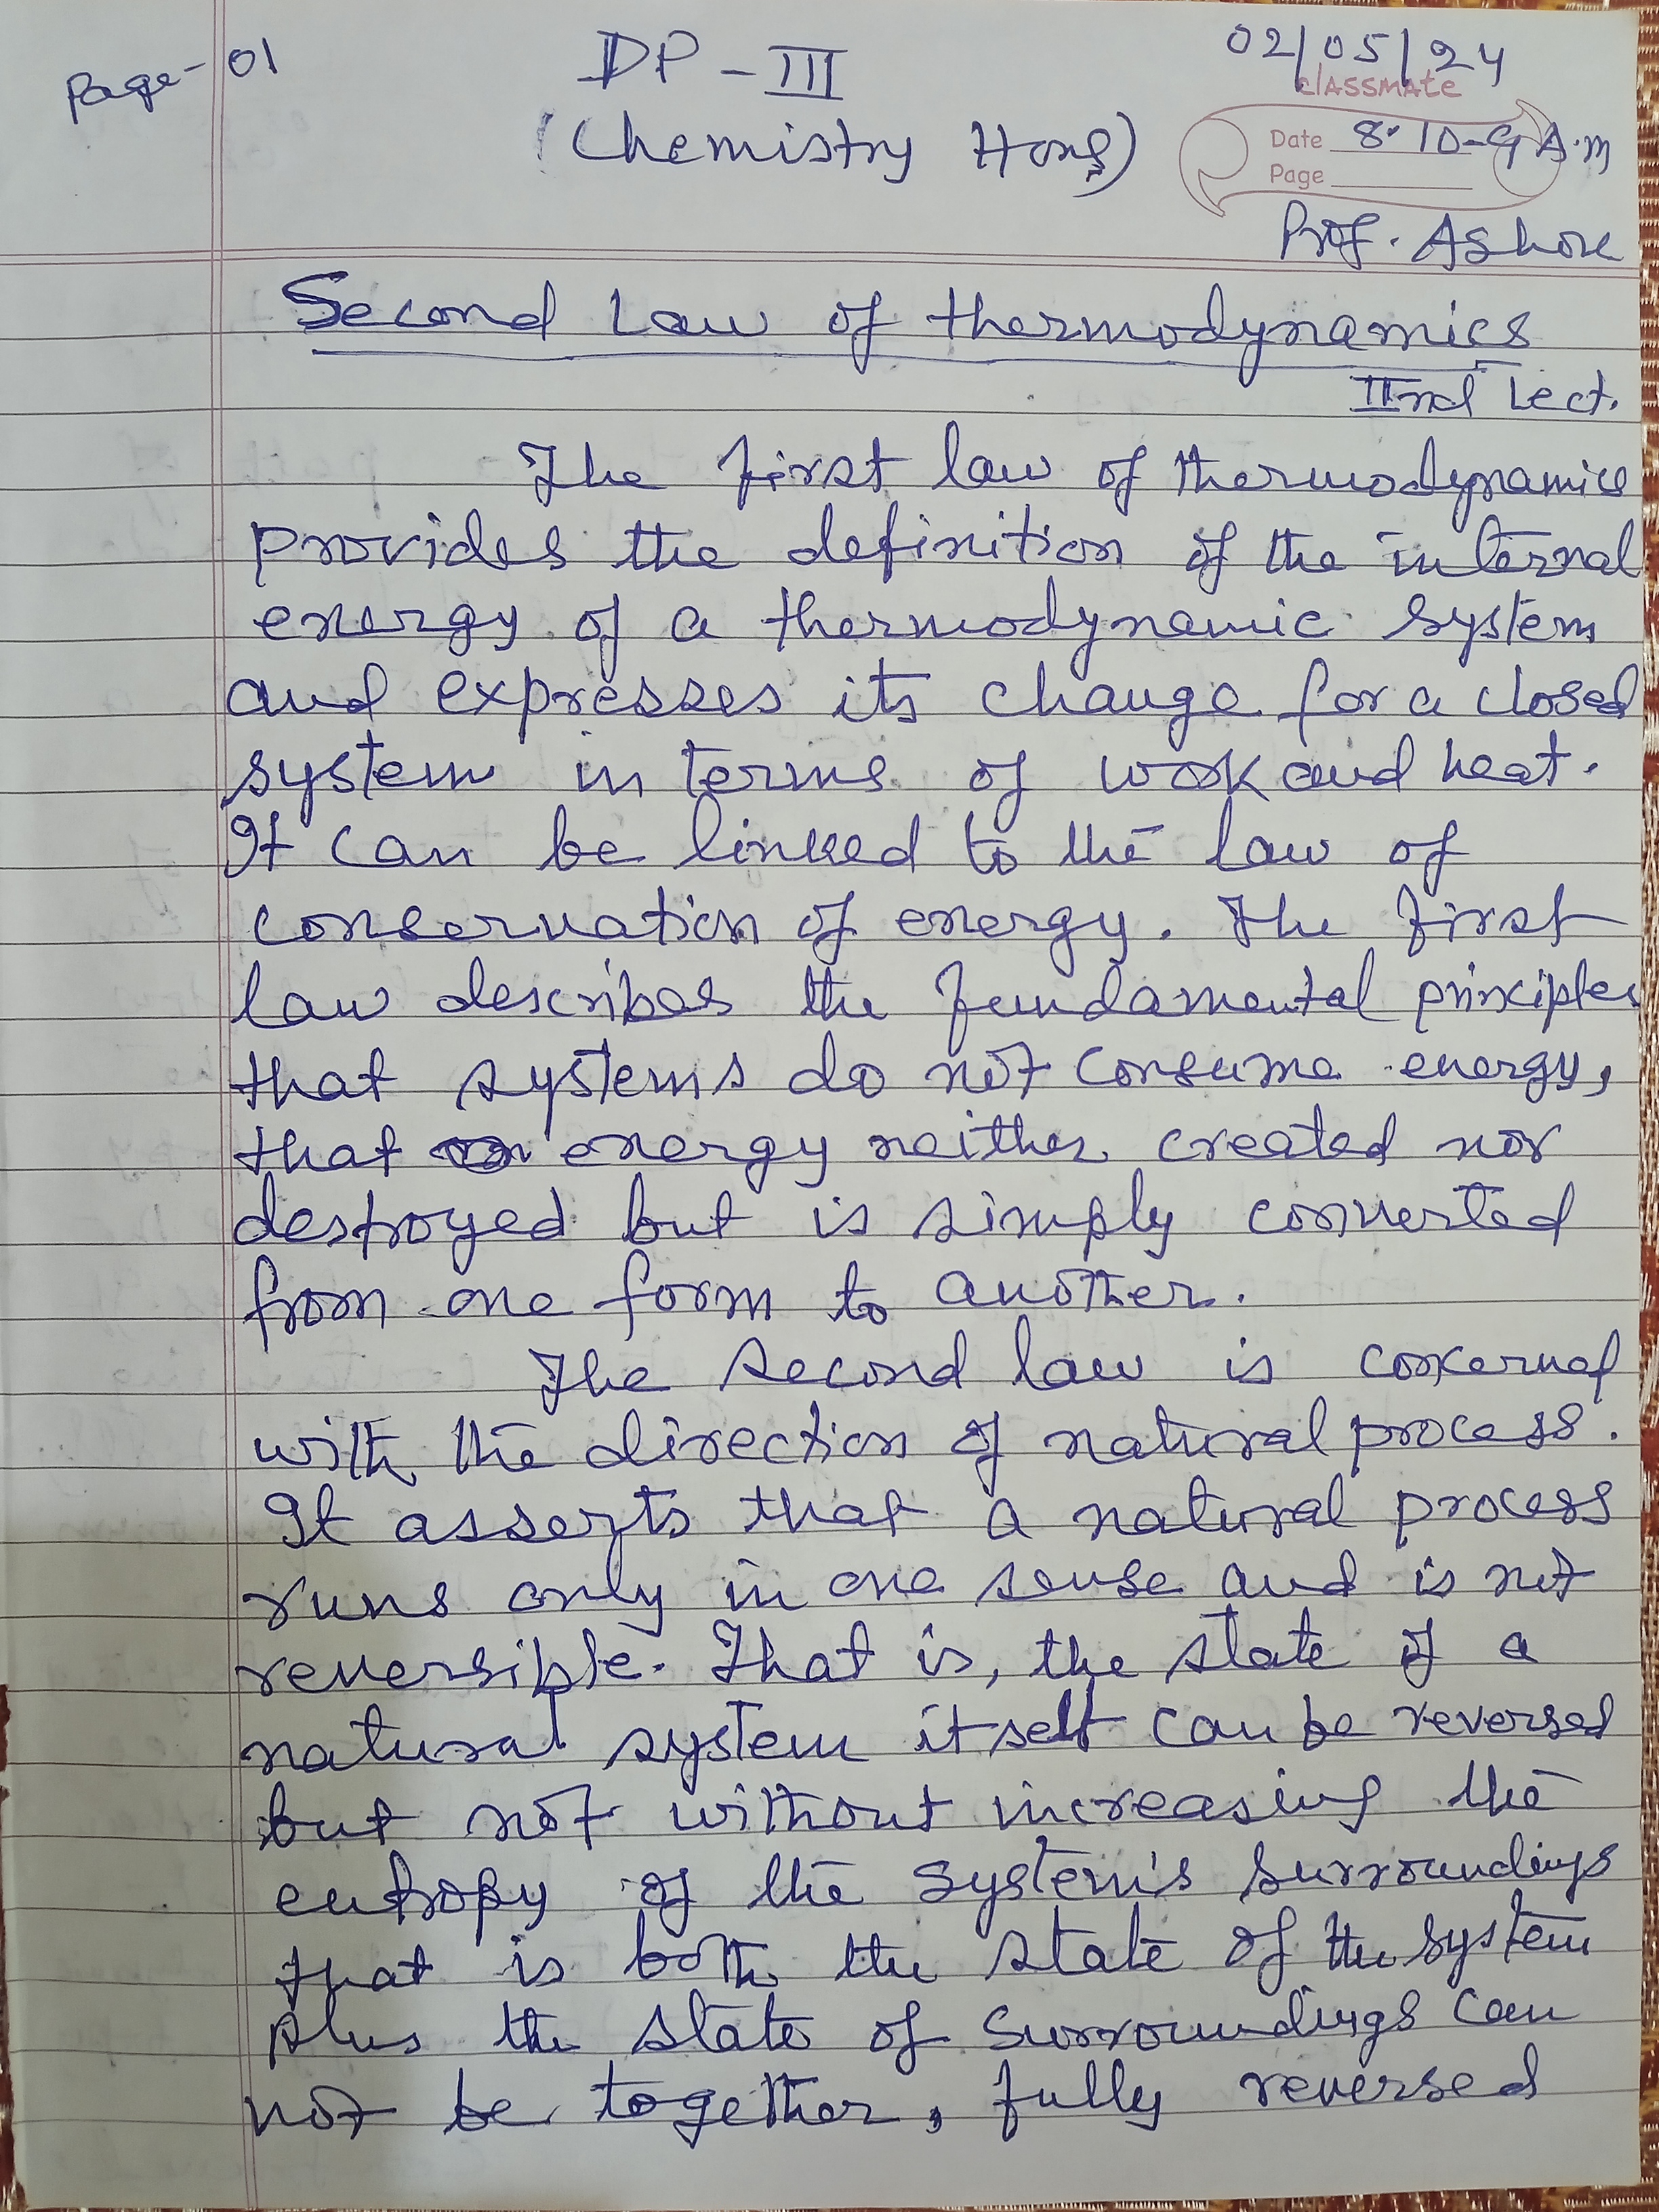 Page- 01
DP - III
02/05/24
classmate
(Chemistry Hons)
Date 8.10-9 A.m
Page
Prof. Ashok
Second Law of thermodynamics
IInd Lect.
The first law of thermodynamics
provides the definition of the internal
energy of a thermodynamic system
and expresses its change for a closed
system in terms of work and heat.
It can be linked to the law of
conservation of energy. The first
law describes the fundamental principles
that systems do not consume energy,
that energy neither created nor
destroyed but is simply converted
from one form to another.
The second law is concerned
with the direction of natural process.
It asserts that a natural process
runs only in one sense and is not
reversible. That is, the state of a
natural system itself can be reversed
but not without increasing the
entropy of the system's surroundings
that is both the state of the system
plus the state of surroundings can
not be together, fully reversed